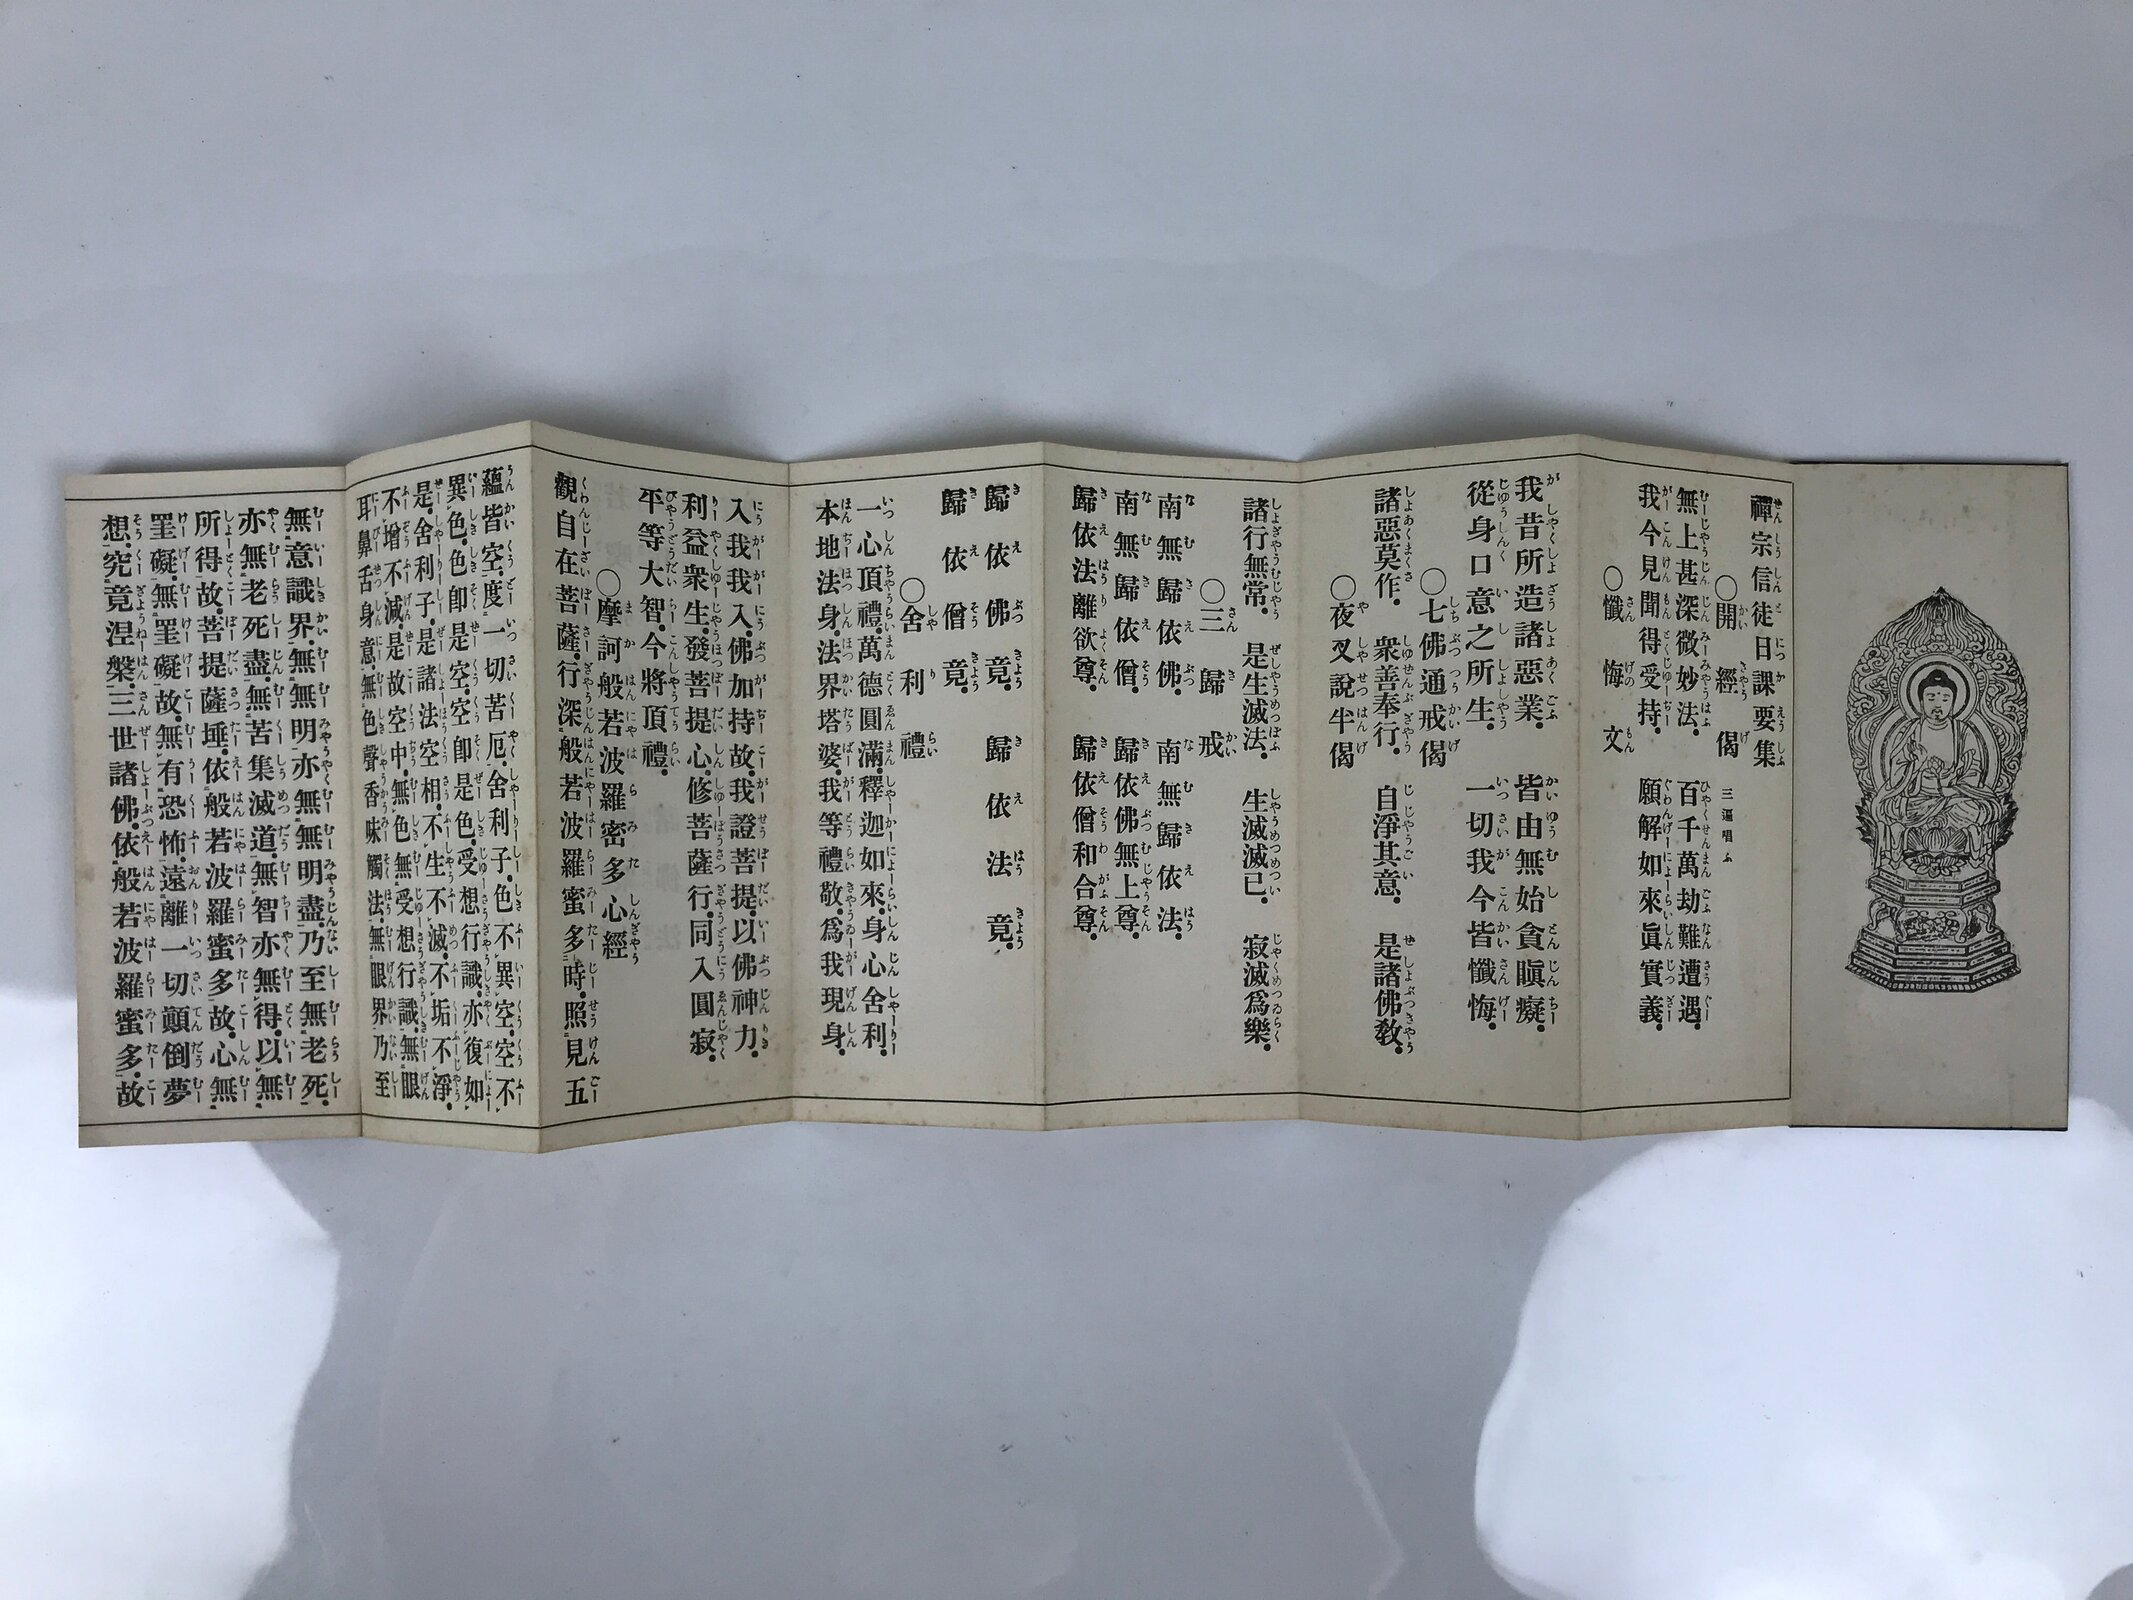 禪宗信徒日課要集
〇開經偈 三遍唱ふ
無上甚深微妙法。 百千萬劫難遭遇。
我今見聞得受持。 願解如來眞實義。
〇懺悔文
我昔所造諸惡業。 皆由無始貪瞋癡。
從身口意之所生。 一切我今皆懺悔。
〇七佛通戒偈
諸惡莫作。 衆善奉行。 自淨其意。 是諸佛敎。
〇夜叉說半偈
諸行無常。 是生滅法。 生滅滅已。 寂滅爲樂。
〇三歸戒
南無歸依佛。 南無歸依法。
南無歸依僧。 歸依佛無上尊。
歸依法離欲尊。 歸依僧和合尊。
歸依佛竟。 歸依法竟。
歸依僧竟。
〇舍利禮
一心頂禮。萬德圓滿。釋迦如來。身心舍利。
本地法身。法界塔婆。我等禮敬。爲我現身。
入我我入。佛加持故。我證菩提。以佛神力。
利益衆生。發菩提心。修菩薩行。同入圓寂。
平等大智。今將頂禮。
〇摩訶般若波羅密多心經
觀自在菩薩。行深般若波羅蜜多時。照見五
蘊皆空。度一切苦厄。舍利子。色不異空。空不
異色。色卽是空。空卽是色。受想行識。亦復如
是。舍利子。是諸法空相。不生不滅。不垢不淨。
不增不減。是故空中。無色無受想行識。無眼
耳鼻舌身意。無色聲香味觸法。無眼界。乃至
無意識界。無無明。亦無無明盡。乃至無老死。
亦無老死盡。無苦集滅道。無智亦無得。以無
所得故。菩提薩埵。依般若波羅蜜多故。心無
罣礙。無罣礙故。無有恐怖。遠離一切顚倒夢
想。究竟涅槃。三世諸佛。依般若波羅蜜多。故